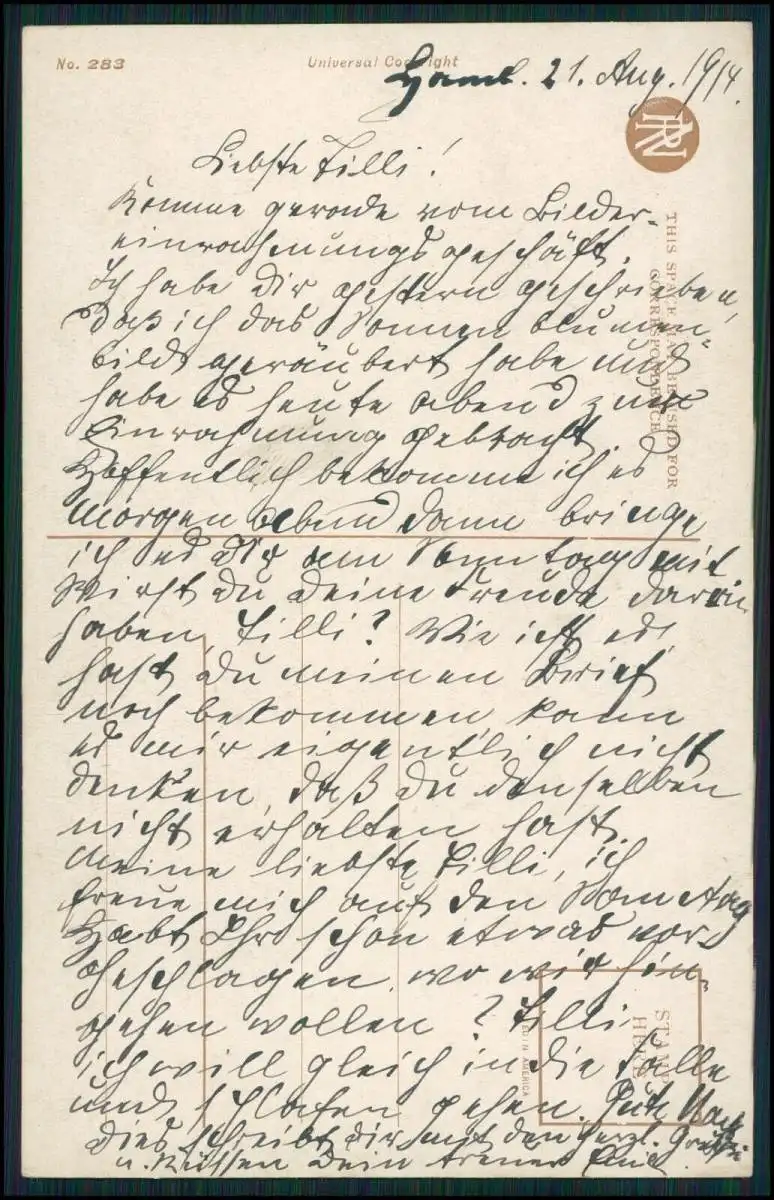 No. 283
Universal Copyright
Hamb. 21. Aug. 1914.
Liebste Tilli!
Komme gerade vom Bilder-
einrahmungsgeschäft.
Ich habe Dir gestern geschrieben,
daß ich das Sonnenblumen-
bild geräubert habe und
habe es heute abend zur
Einrahmung gebracht.
Hoffentlich bekomme ich es
morgen abend dann bringe
ich es Dir am Sonntag mit
Wirst du deine Freude daran
haben, Tilli? Wie ist es,
hast du meinen Brief
noch bekommen kann
es mir eigentlich nicht
denken, daß du denselben
nicht erhalten hast.
Meine liebste Tilli, ich
freue mich auf den Sonntag
Habt Ihr schon etwas vor-
geschlagen, wo wir hin-
gehen wollen? Tilli,
ich will gleich in die Falle
und schlafen gehen. Gute Nacht
dies schreibt dir mit den herzl. Grüßen
u. Küssen Dein treuer Emil.
THIS SPACE MAY BE USED FOR
CORRESPONDENCE
STAMP
HERE
IN AMERICA